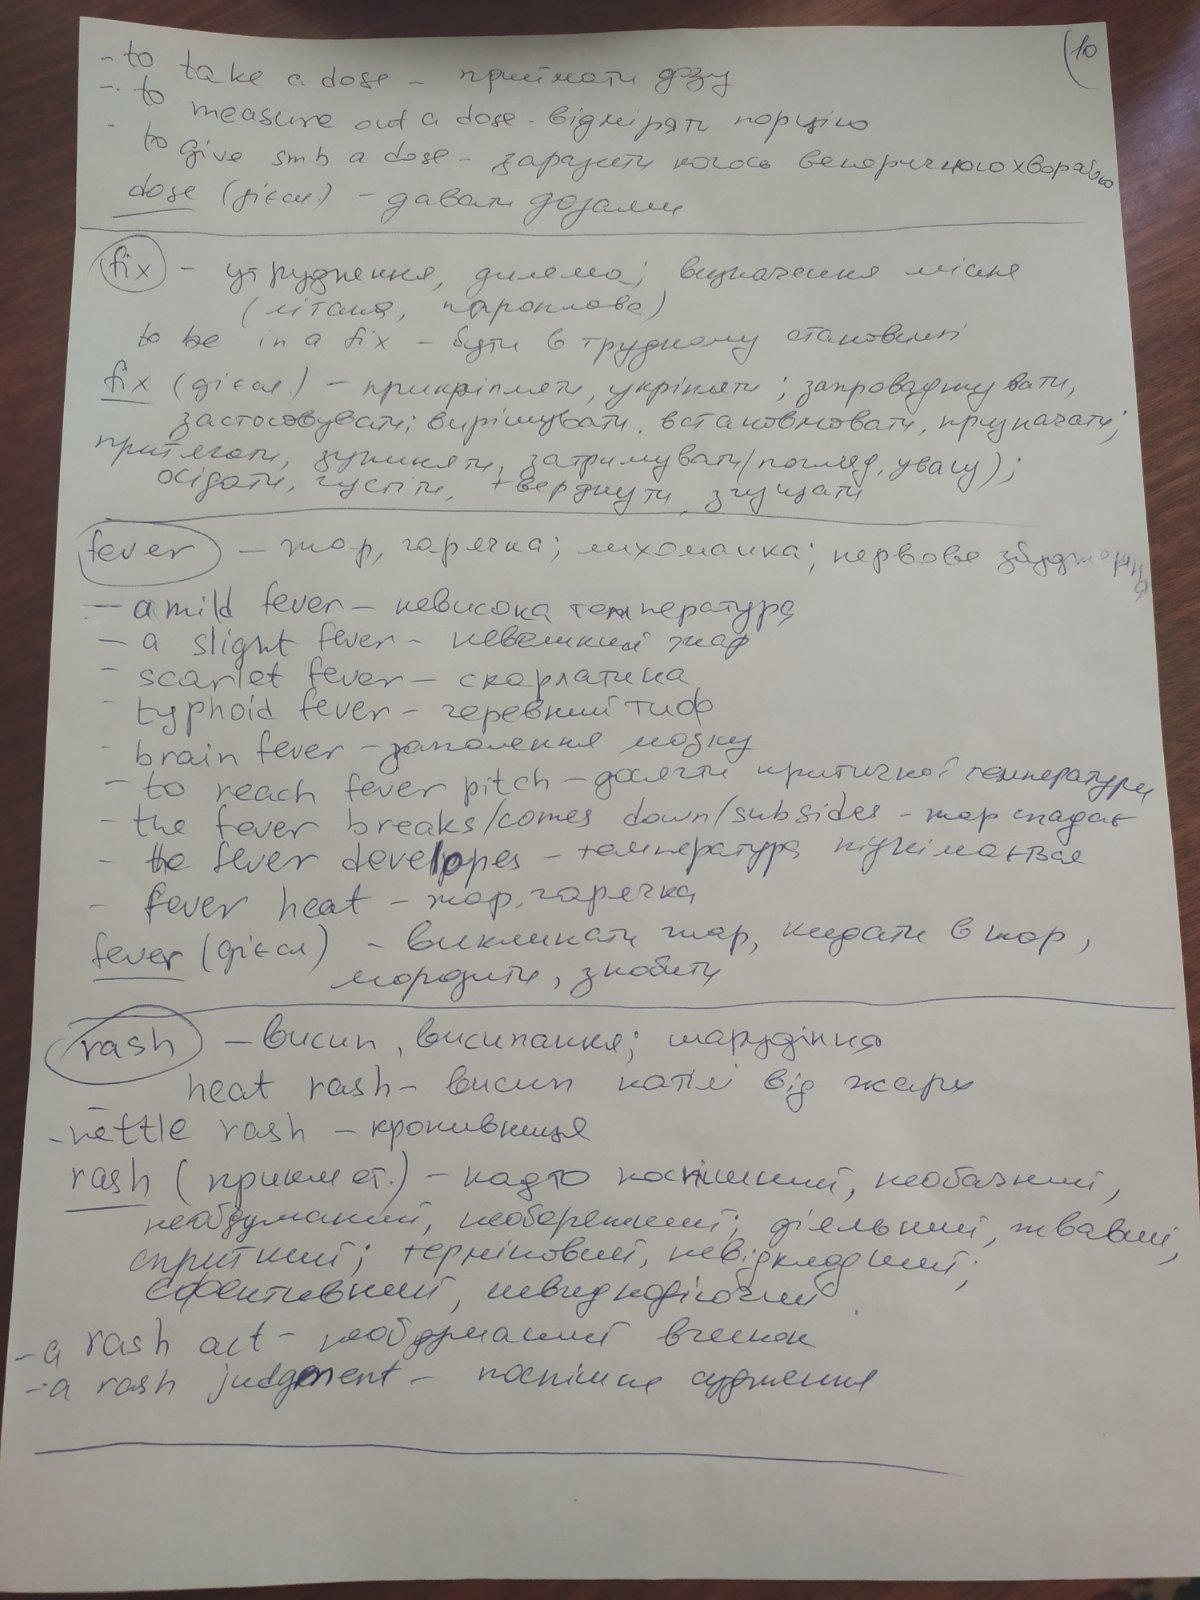 10
- to take a dose - приймати дозу
- to measure out a dose - відміряти порцію
- to give smb a dose - заразити когось венеричною хворобою
dose (дієсл.) - давати дозами
fix - утруднення, дилема; визначення місця
(літака, пароплава)
to be in a fix - бути в трудному становищі
fix (дієсл.) - прикріпляти, укріпляти; запроваджувати,
застосовувати; вирішувати, встановлювати, призначати;
притягати, зупиняти, затримувати (погляд, увагу);
осідати, густіти, тверднути, згущати
fever - жар, гарячка; лихоманка; нервове збудження
- a mild fever - невисока температура
- a slight fever - невеликий жар
- scarlet fever - скарлатина
- typhoid fever - черевний тиф
- brain fever - запалення мозку
- to reach fever pitch - досягти критичної температури
- the fever breaks/comes down/subsides - жар спадає
- the fever developes - температура піднімається
- fever heat - жар, гарячка
fever (дієсл) - викликати жар, кидати в жар,
морозити, знобити
rash - висип, висипання; шарудіння
heat rash - висип на тілі від жари
- nettle rash - кропивниця
rash (прикмет.) - надто поспішний, необачний,
необдуманий, необережний; діяльний, жвавий,
спритний; терміновий, невідкладний;
ефективний, швидкодіючий
- a rash act - необдуманий вчинок
- a rash judgment - поспішне судження